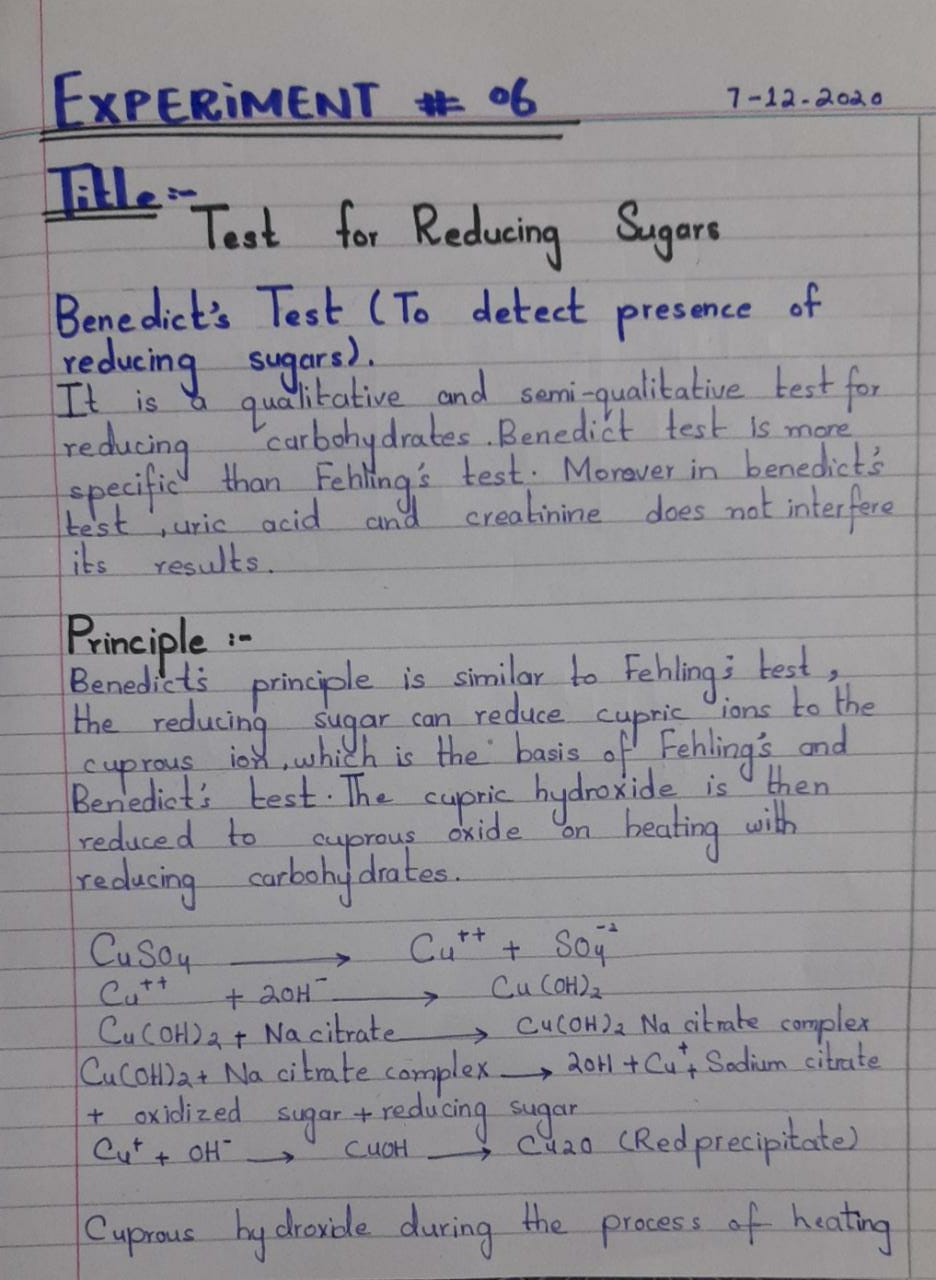 EXPERIMENT # 06
7-12-2020
Title:-
Test for Reducing Sugars
Benedict's Test (To detect presence of
reducing sugars).
It is a qualitative and semi-qualitative test for
reducing carbohydrates. Benedict test is more
specific than Fehling's test. Morover in benedict's
test, uric acid and creatinine does not interfere
its results.
Principle :-
Benedict's principle is similar to Fehling's test,
the reducing sugar can reduce cupric ions to the
cuprous ion, which is the basis of Fehling's and
Benedict's test. The cupric hydroxide is then
reduced to cuprous oxide on heating with
reducing carbohydrates.
CuSO₄ ⟶ Cu⁺⁺ + SO₄⁻²
Cu⁺⁺ + 2OH⁻ ⟶ Cu(OH)₂
Cu(OH)₂ + Na citrate ⟶ Cu(OH)₂ Na citrate complex
Cu(OH)₂ + Na citrate complex ⟶ 2OH + Cu⁺ + Sodium citrate
+ oxidized sugar + reducing sugar
Cu⁺ + OH⁻ ⟶ CuOH ⟶ Cu2O (Red precipitate)
Cuprous hydroxide during the process of heating